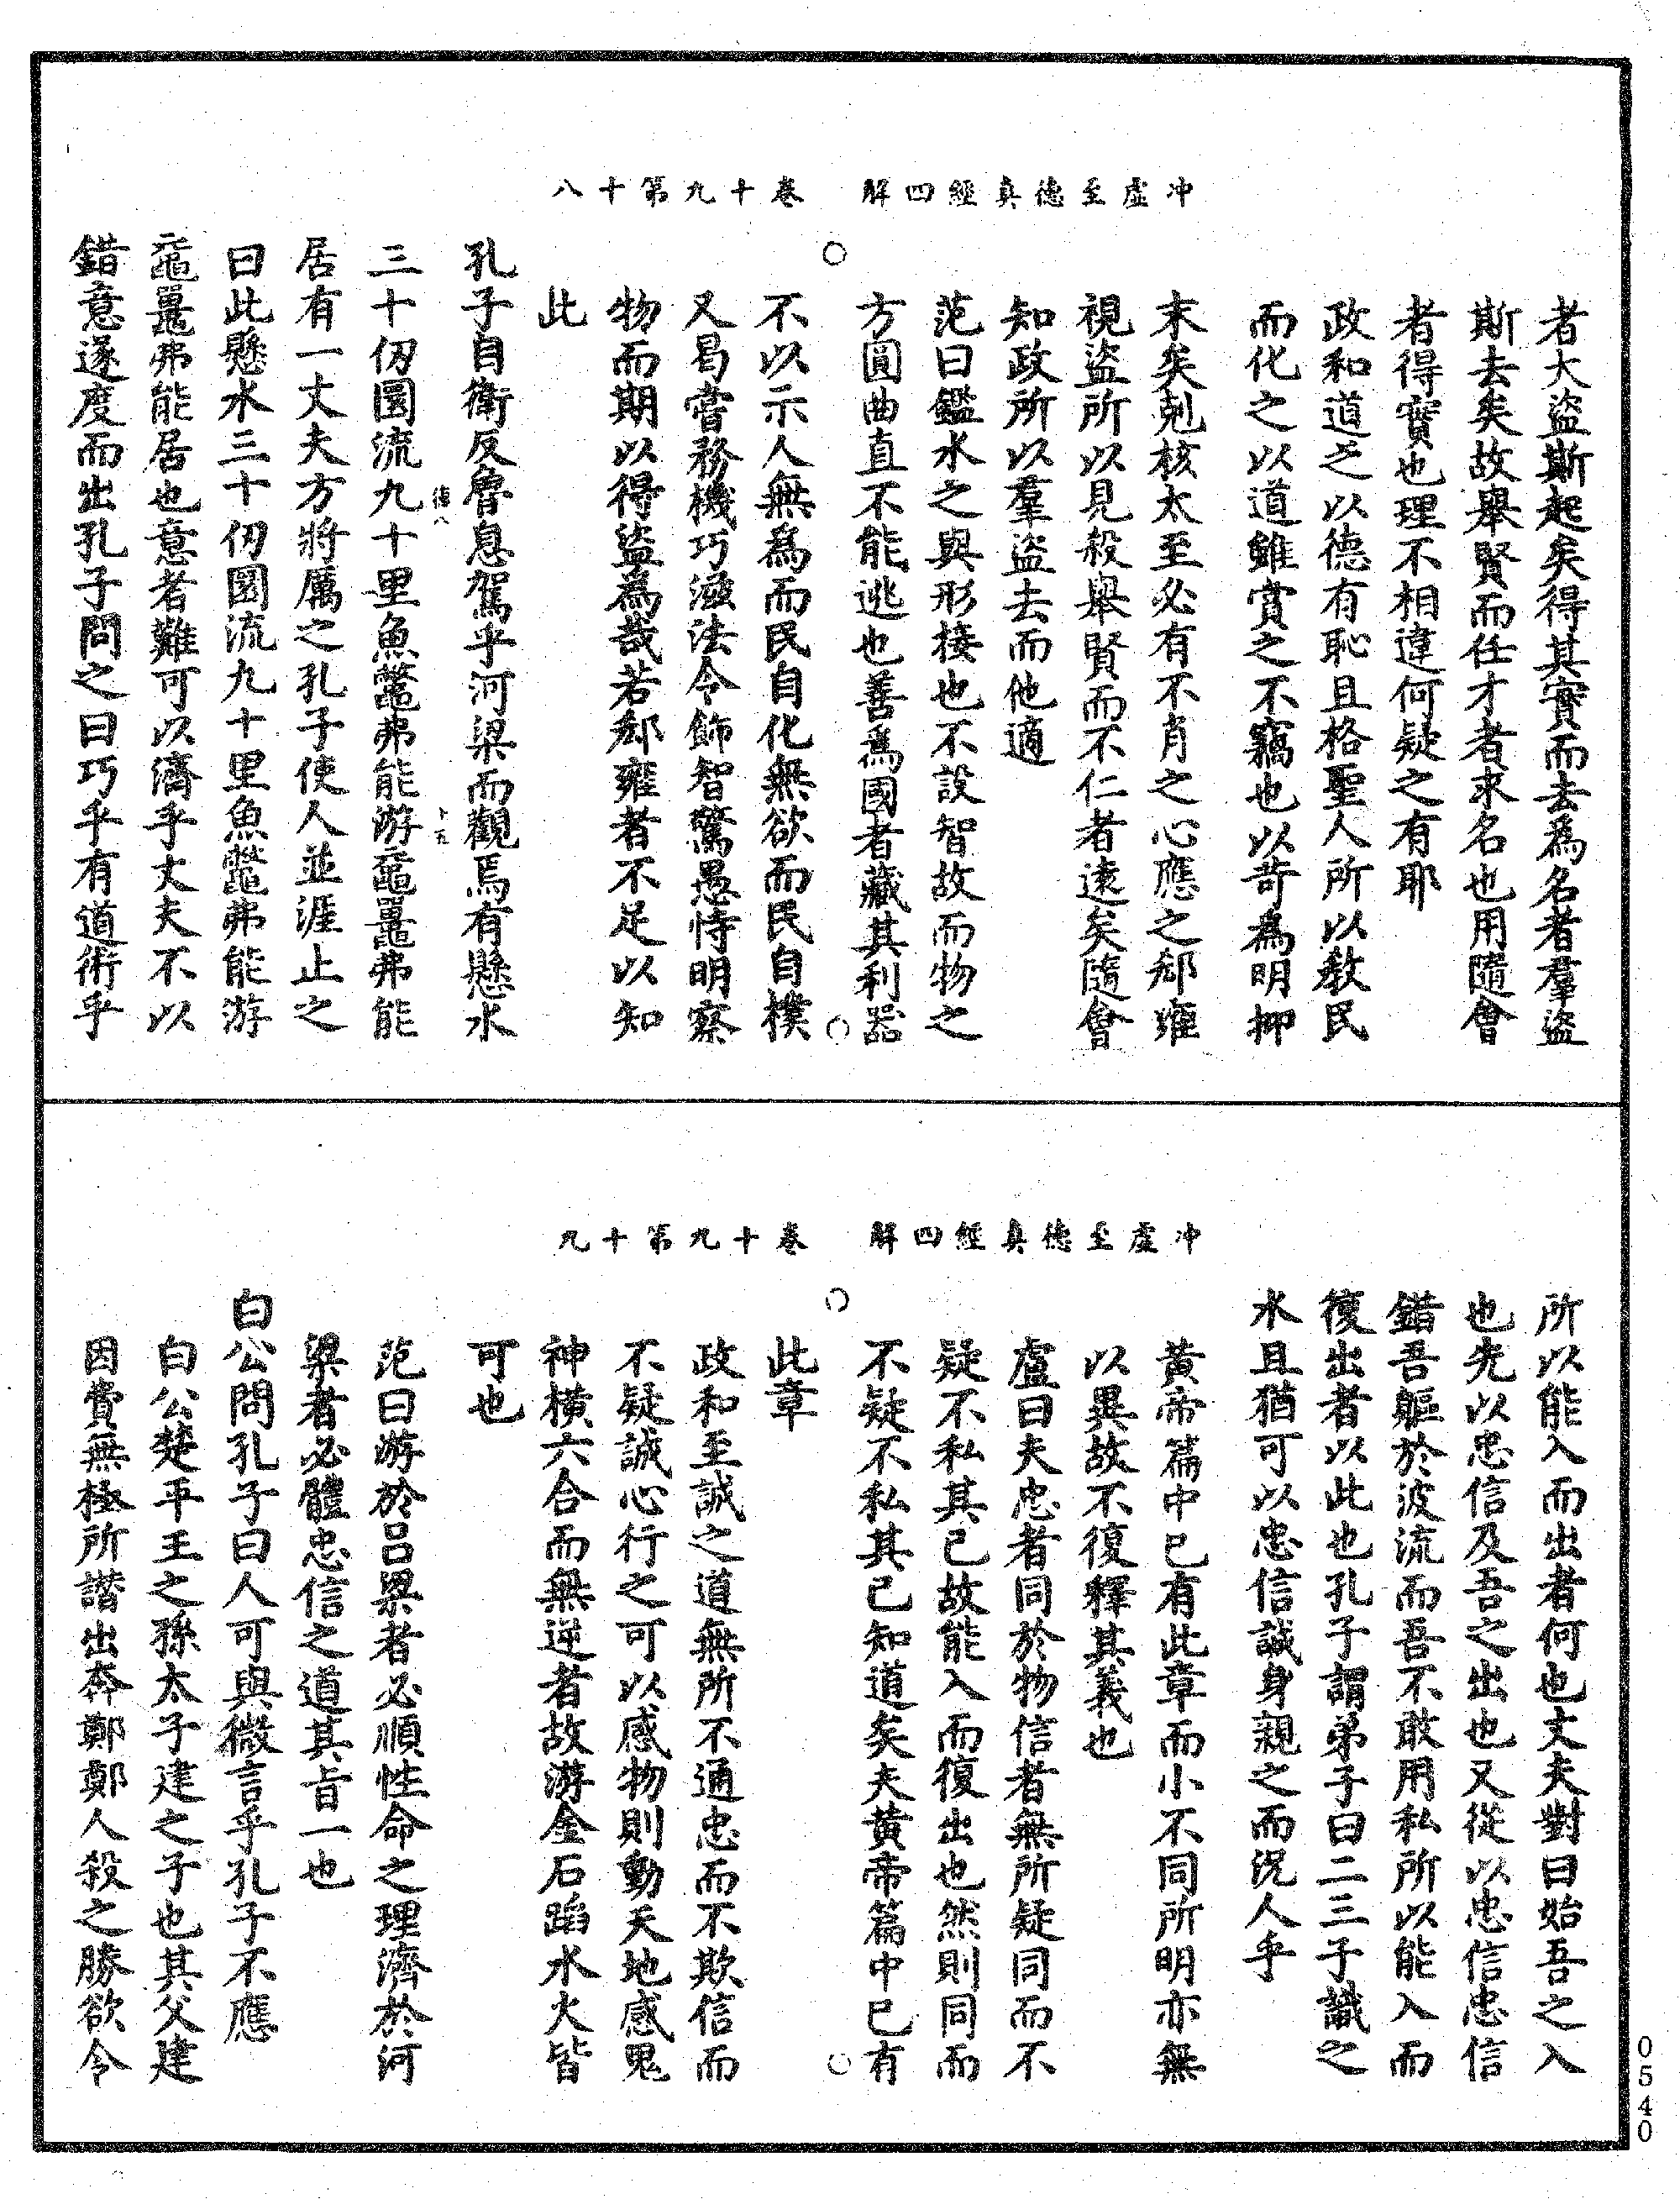 冲虛至德真經四解　卷十九第十八
者大盜斯起矣得其實而去為名者羣盜
斯去矣故舉賢而任才者求名也用隨會
者得實也理不相違何疑之有耶
政和道之以德有恥且格聖人所以教民
而化之以道雖賞之不竊也以苛為明抑
末矣剋核太至必有不肖之心應之郄雍
視盜所以見殺舉賢而不仁者遠矣隨會
知政所以羣盜去而他適
范曰鑑水之與形接也不設智故而物之
方圓曲直不能逃也善為國者藏其利器
不以示人無為而民自化無欲而民自樸
又曷嘗務機巧滋法令飾智驚愚恃明察
物而期以得盜為哉若郄雍者不足以知
此
孔子自衛反魯息駕乎河梁而觀焉有懸水
三十仞圜流九十里魚鼈弗能游黿鼉弗能
居有一丈夫方將厲之孔子使人並涯止之
曰此懸水三十仞圜流九十里魚鼈弗能游
黿鼉弗能居也意者難可以濟乎丈夫不以
錯意遂度而出孔子問之曰巧乎有道術乎
冲虛至德真經四解　卷十九第十九
所以能入而出者何也丈夫對曰始吾之入
也先以忠信及吾之出也又從以忠信忠信
錯吾軀於波流而吾不敢用私所以能入而
復出者以此也孔子謂弟子曰二三子識之
水且猶可以忠信誠身親之而況人乎
黃帝篇中已有此章而小不同所明亦無
以異故不復釋其義也
盧曰夫忠者同於物信者無所疑同而不
疑不私其己故能入而復出也然則同而
不疑不私其己知道矣夫黃帝篇中已有
此章
政和至誠之道無所不通忠而不欺信而
不疑誠心行之可以感物則動天地感鬼
神橫六合而無逆者故游金石蹈水火皆
可也
范曰游於呂梁者必順性命之理濟於河
梁者必體忠信之道其旨一也
白公問孔子曰人可與微言乎孔子不應
白公楚平王之孫太子建之子也其父建
因費無極所譖出奔鄭鄭人殺之勝欲令
0540